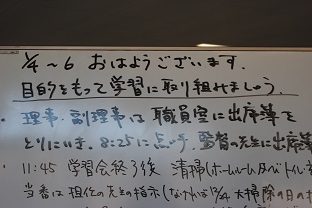 1/4~6 おはようございます。
目的をもって学習に取り組みましょう。
・理事・副理事は職員室に出席簿を
とりにいき、8:25に点呼、監督の先生に出席簿
・11:45 学習会終了後 清掃(ホームルーム及びトイレ
当番は担任の先生の指示(なければ12/24 大掃除の日の